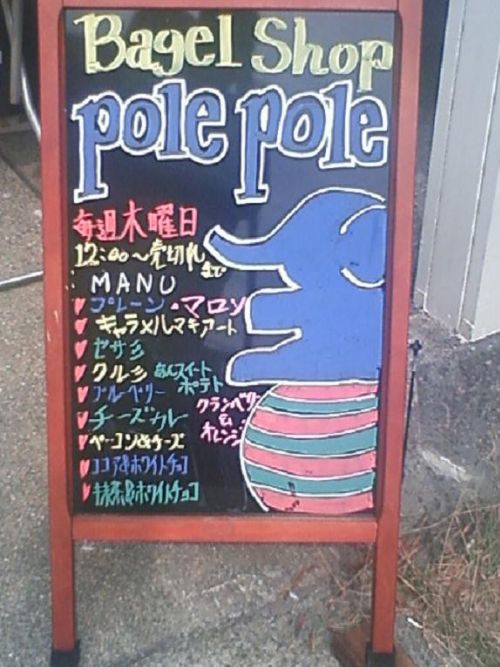 Bagel Shop
pole pole
毎週木曜日
12:00~売切れまで
MANU
プレーン・マロン
キャラメルマキアート
セサミ
クルミ あんスイートポテト
ブルーベリー
クランベリー&オレンジ
チーズカレー
ベーコン&チーズ
ココア&ホワイトチョコ
抹茶&ホワイトチョコ